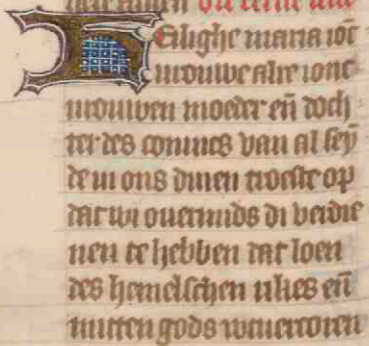 Eilighe maria ioc
urouwe alre ionc
urouwen moeder en̄ doch
ter des conincs van al sey
de in ons dinen trooste op
dat wi ouermids di verdie
nen te hebben dat loen
des hemelschen rikes en̄
mitten gods wtuercoren